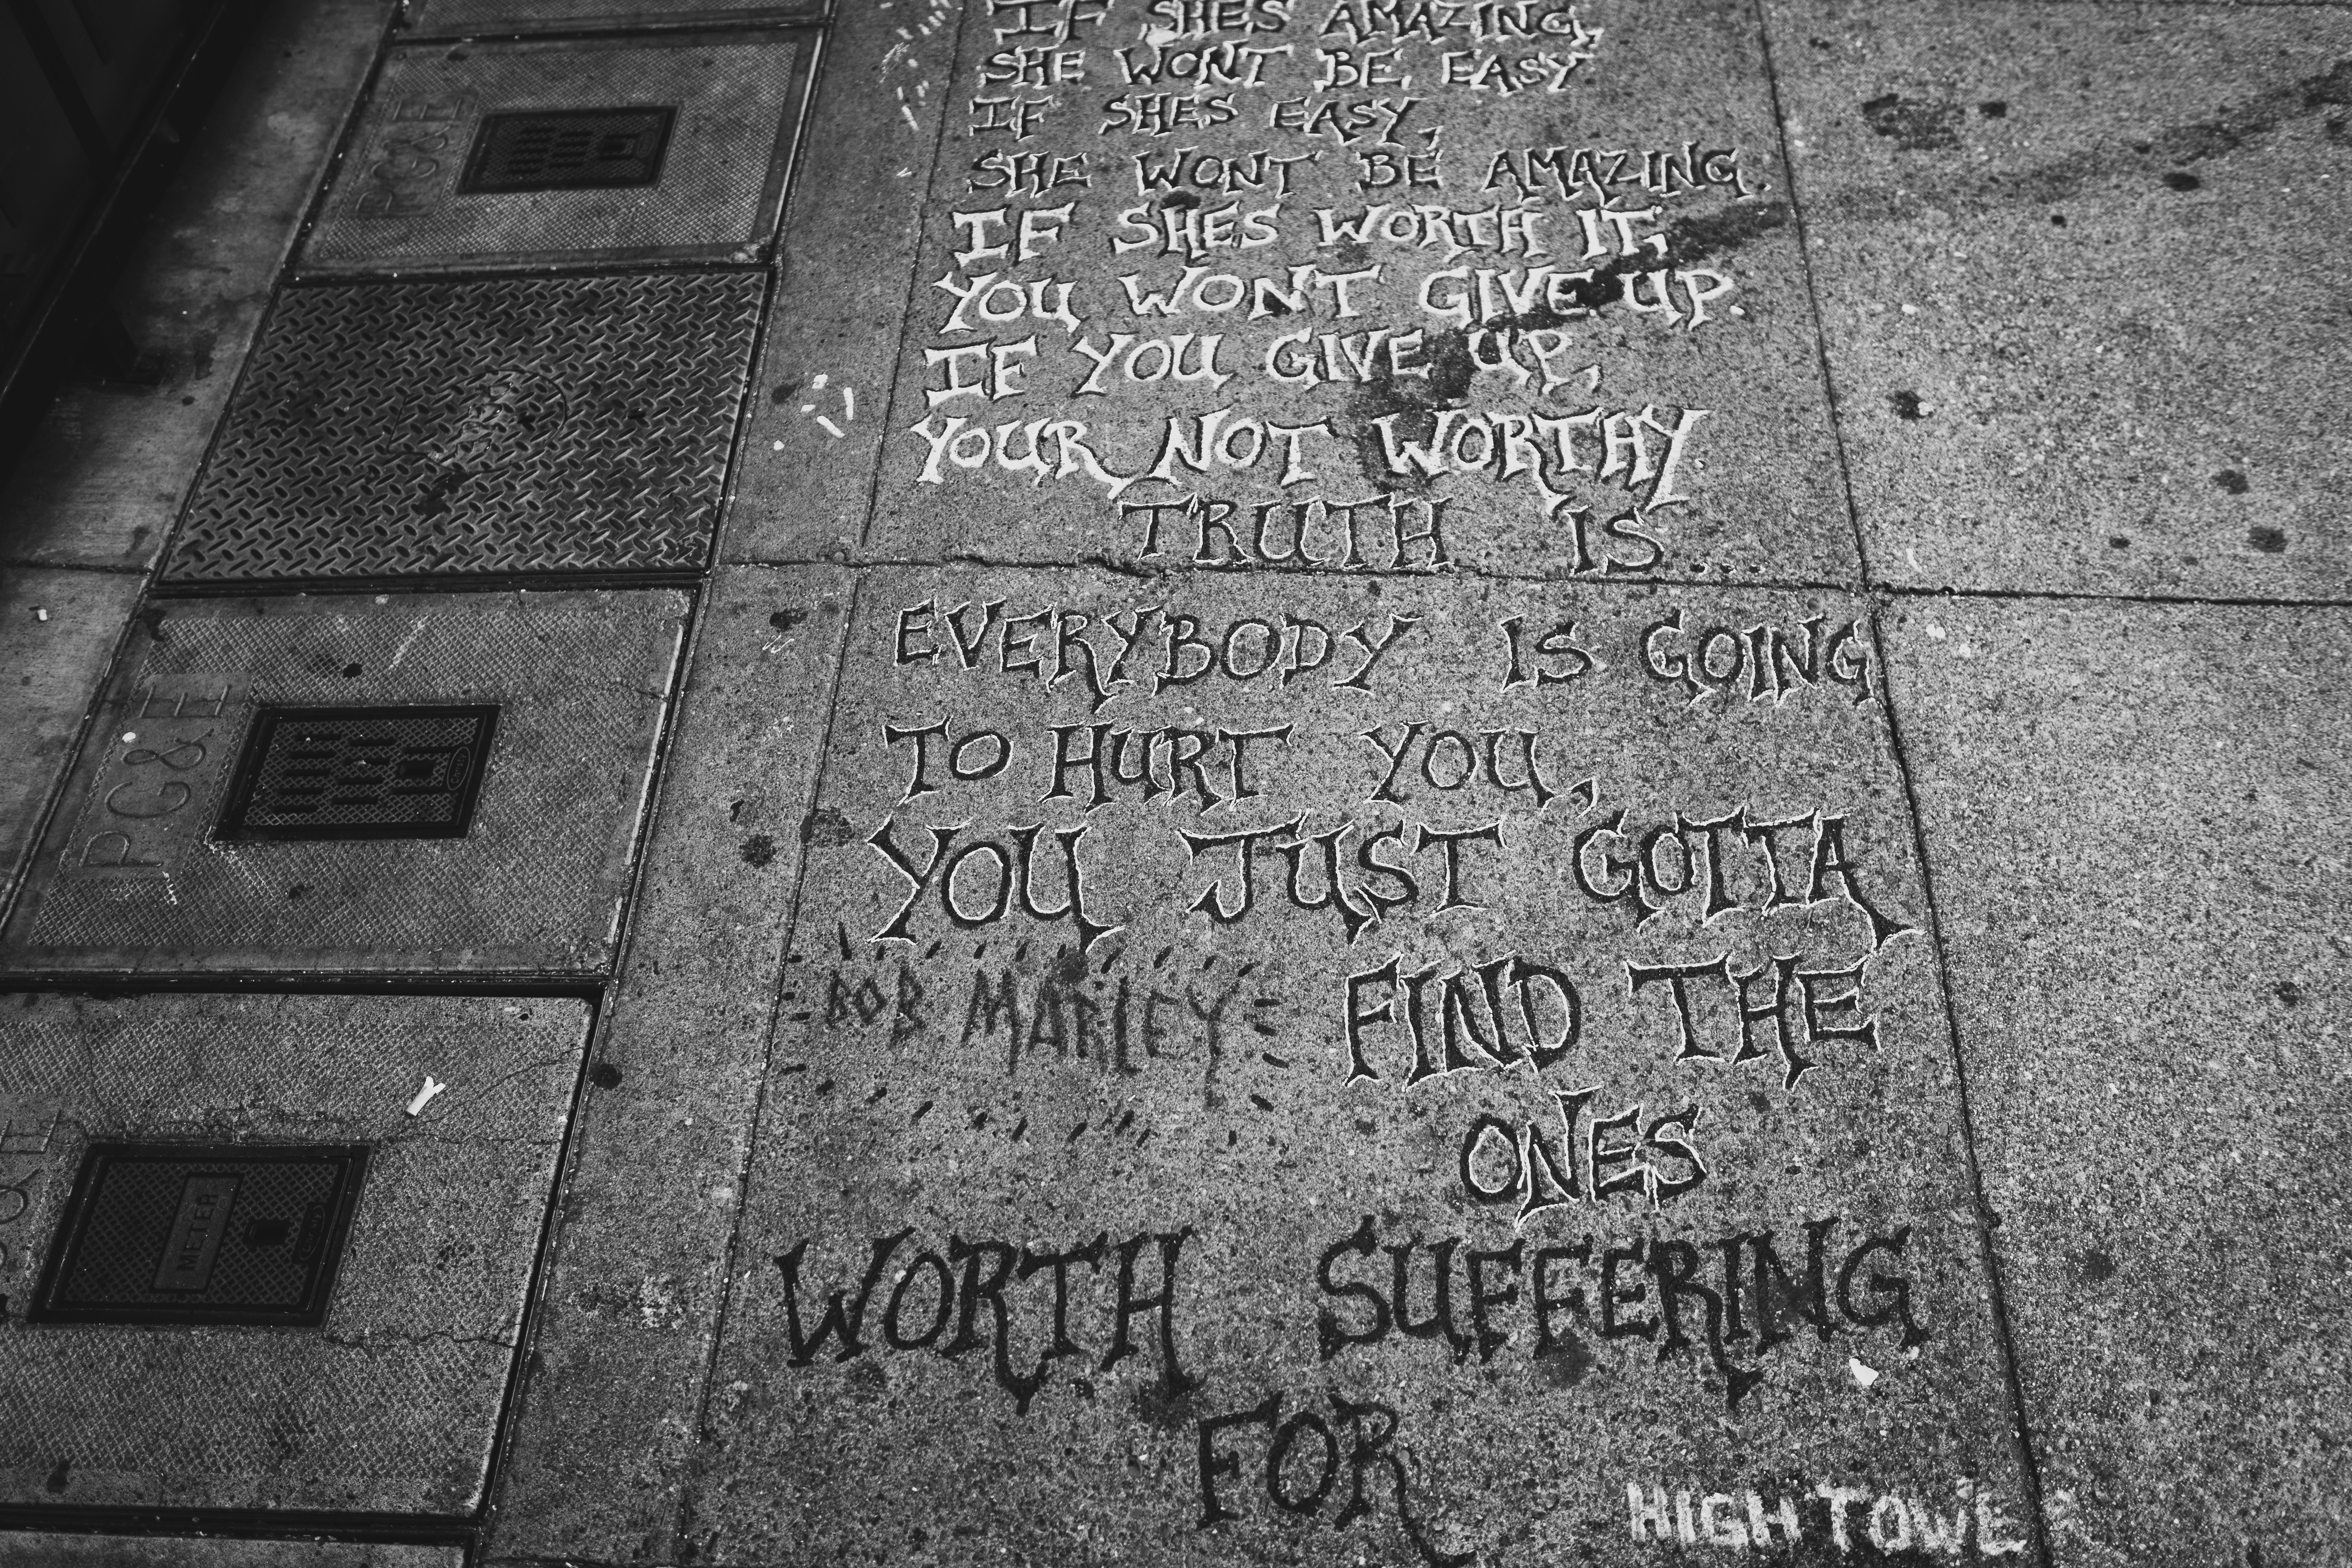 IF SHES AMAZING,
SHE WONT BE EASY
IF SHES EASY,
SHE WONT BE AMAZING.
IF SHES WORTH IT,
YOU WONT GIVE UP.
IF YOU GIVE UP,
YOUR NOT WORTHY.
TRUTH IS...
EVERYBODY IS GOING
TO HURT YOU,
YOU JUST GOTTA
FIND THE
ONES
WORTH SUFFERING
FOR
BOB MARLEY
HIGHTOWER
PG&E
PG&E
PG&E
METER